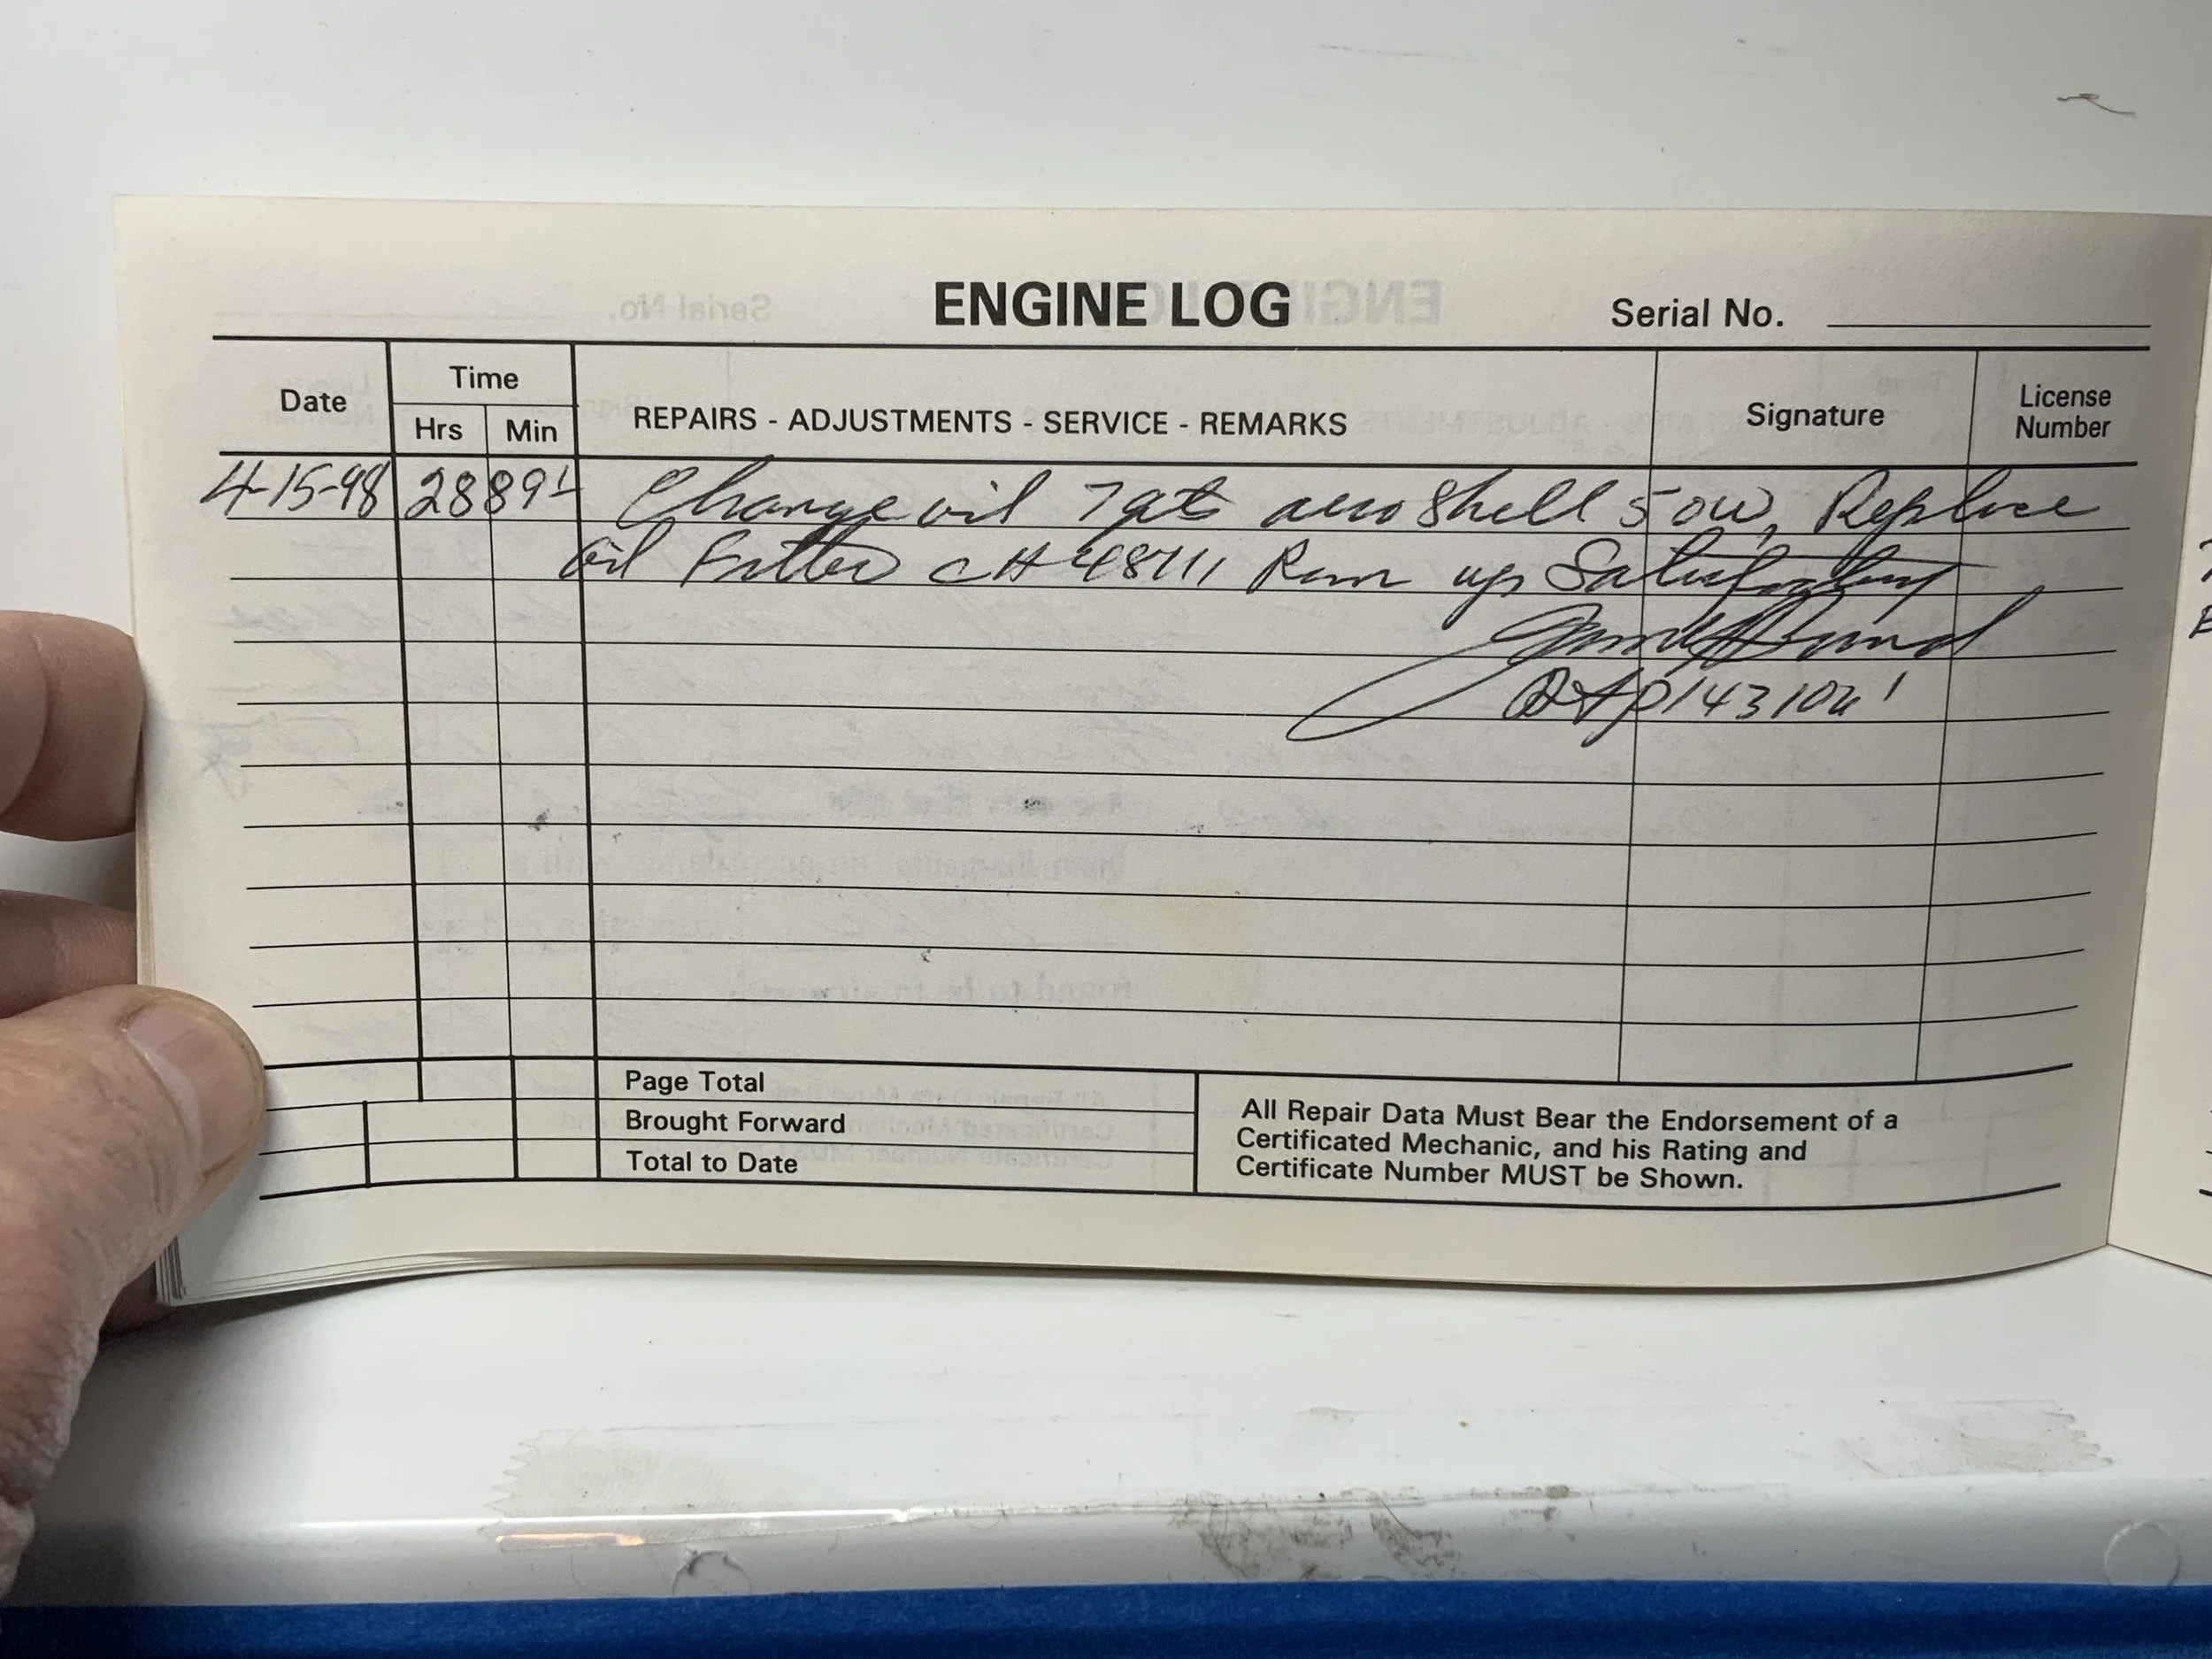 ENGINE LOG
Serial No.
Date
Time
Hrs Min
REPAIRS - ADJUSTMENTS - SERVICE - REMARKS
Signature
License
Number
4-15-98 2889 Change oil 7qts aeroshell 50W, Replace
oil Filter CH48111 Run up Satisfactory
Page Total
Brought Forward
Total to Date
All Repair Data Must Bear the Endorsement of a
Certificated Mechanic, and his Rating and
Certificate Number MUST be Shown.